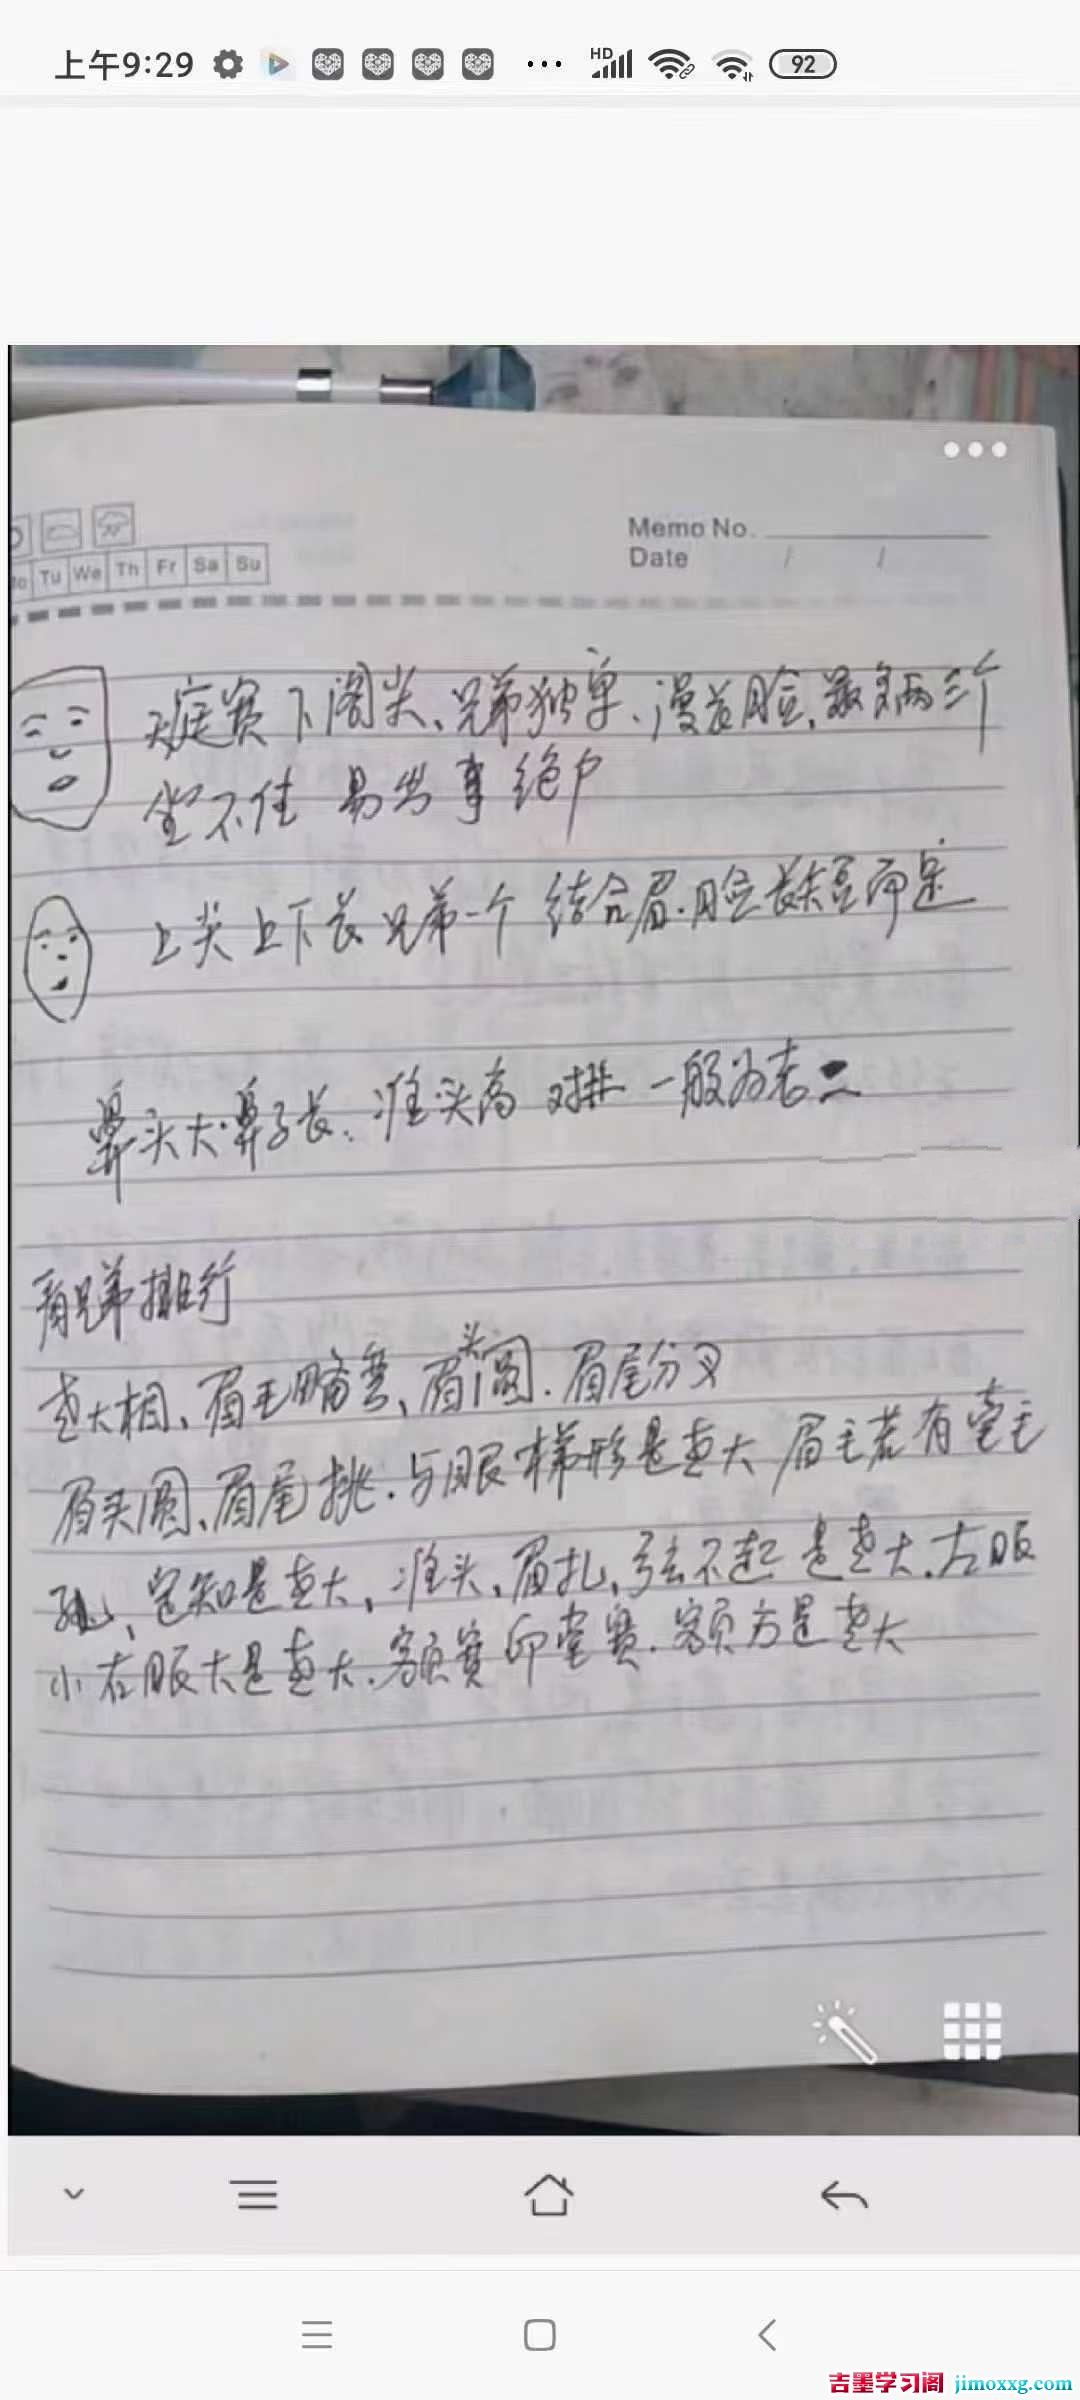 上午9:29
HD
92
Memo No.
Date / /
Mo Tu We Th Fr Sa Su
天庭宽下阁尖、兄弟独单、漫长脸、最多两三个
坐不住 易出事 绝户
上尖上下长 兄弟一个 结合眉.脸长短而定
鼻头大.鼻子长、准头高 对排 一般为老二
看兄弟排行
老大相、眉毛略弯、眉头圆.眉尾分叉
眉头圆、眉尾挑.与眼梯形是老大 眉毛若有毫毛
定知是老大,准头、眉扎、弦不起是老大.左眼
小右眼大是老大.额宽印堂宽.额方是老大
吉墨学习阁 jimoxxg.com